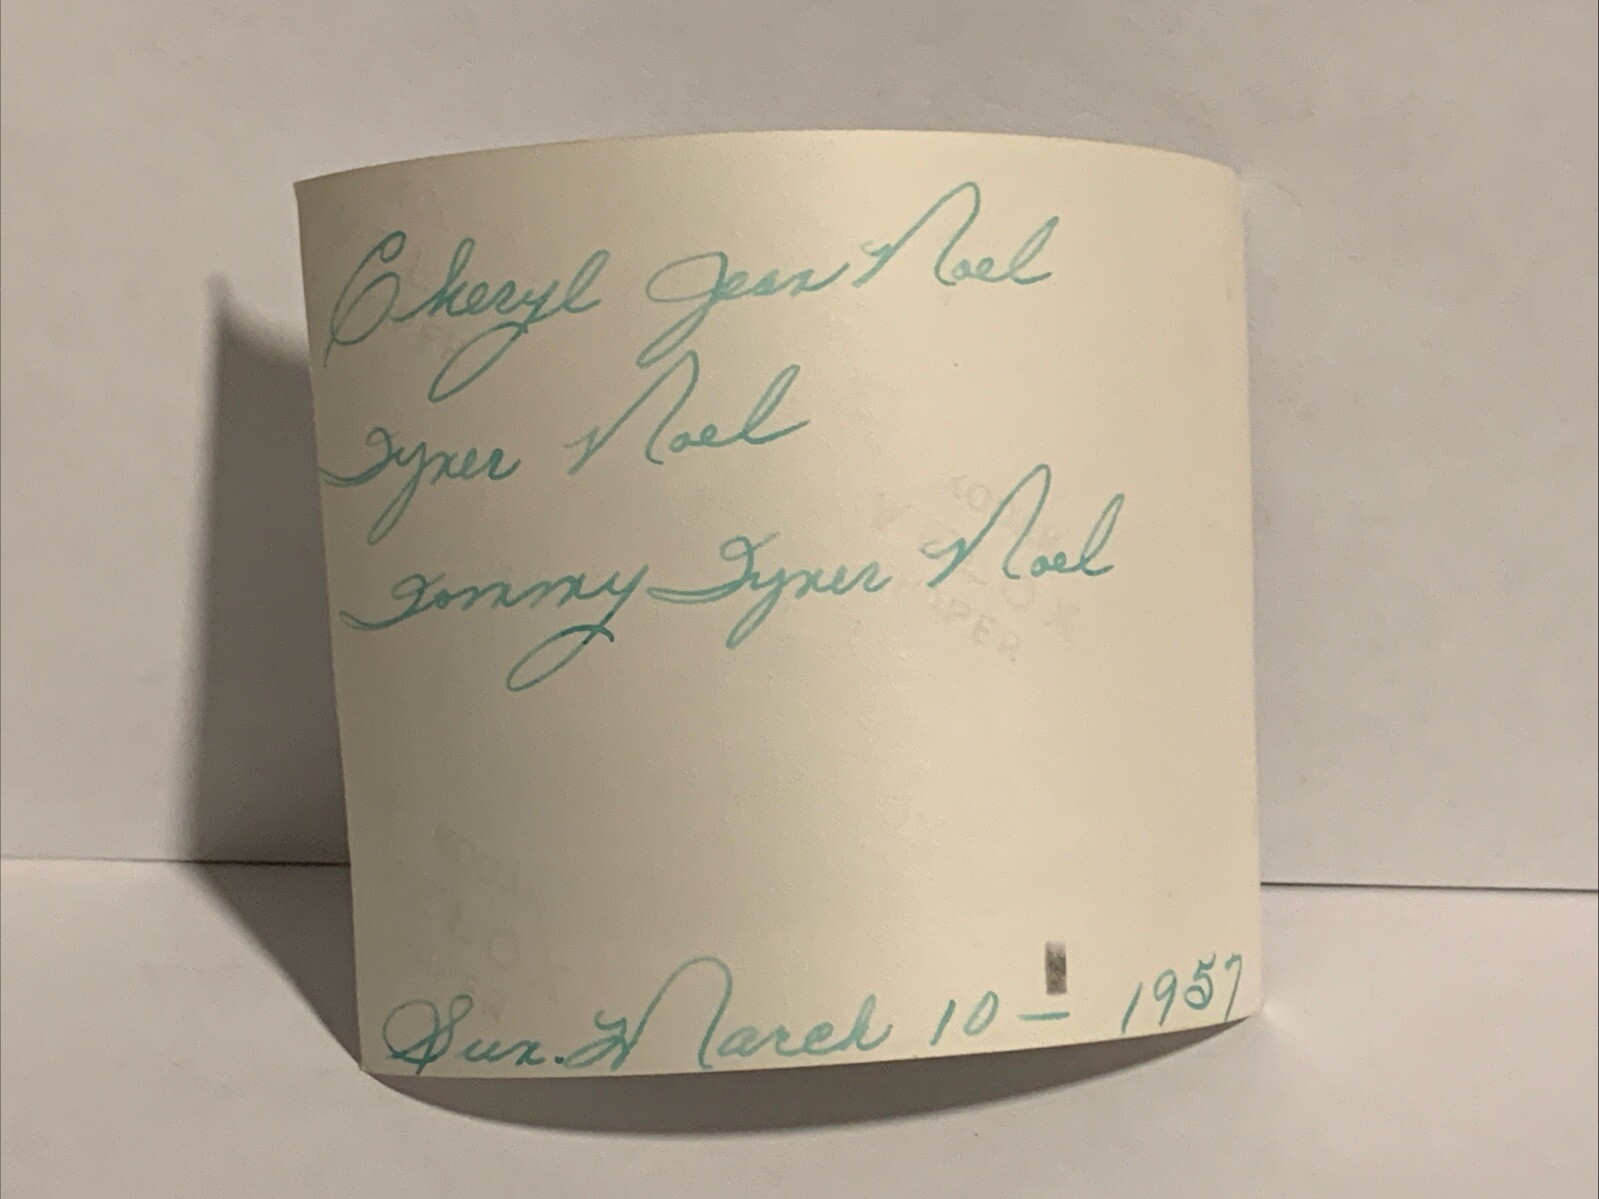 Cheryl Jean Noel
Tyner Noel
Tommy Tyner Noel
Sun. March 10 - 1957